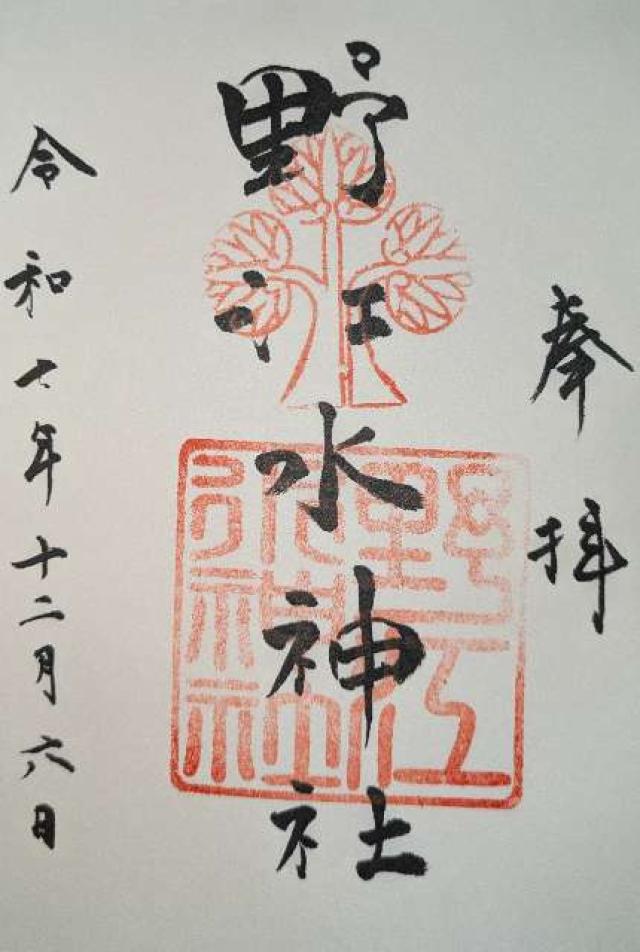 奉拝
野江水神社
野江
水神社
令和七年十二月六日